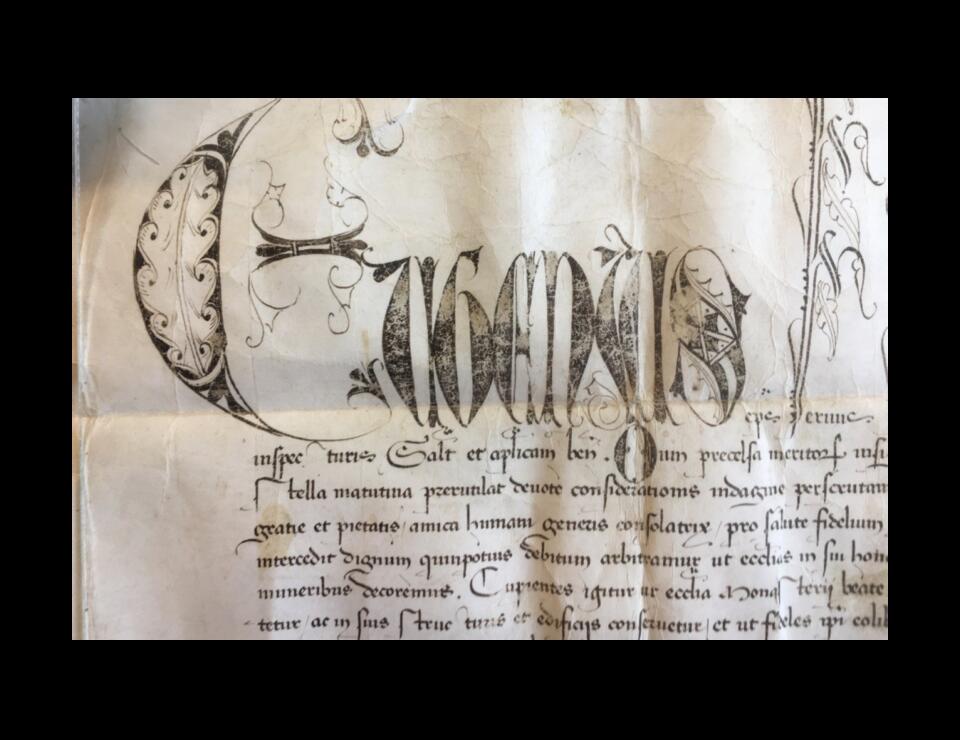 Eugenius epc seruuc
inspec turis Salt et aplicam ben . Qum precelsa meritorum insi
stella matutina prerutilat deuote considerationis indagine perscrutam
gratie et pietatis amica humani generis consolatrix / pro salute fidelium
intercedit dignum quinpotius debitum arbitramur ut ecclias in sui hono
muneribus decoremus . Cupientes igitur ut ecclia Monasterij beate
tetur / ac in suis structuris et edificijs conseruetur / et ut fideles ipi colib